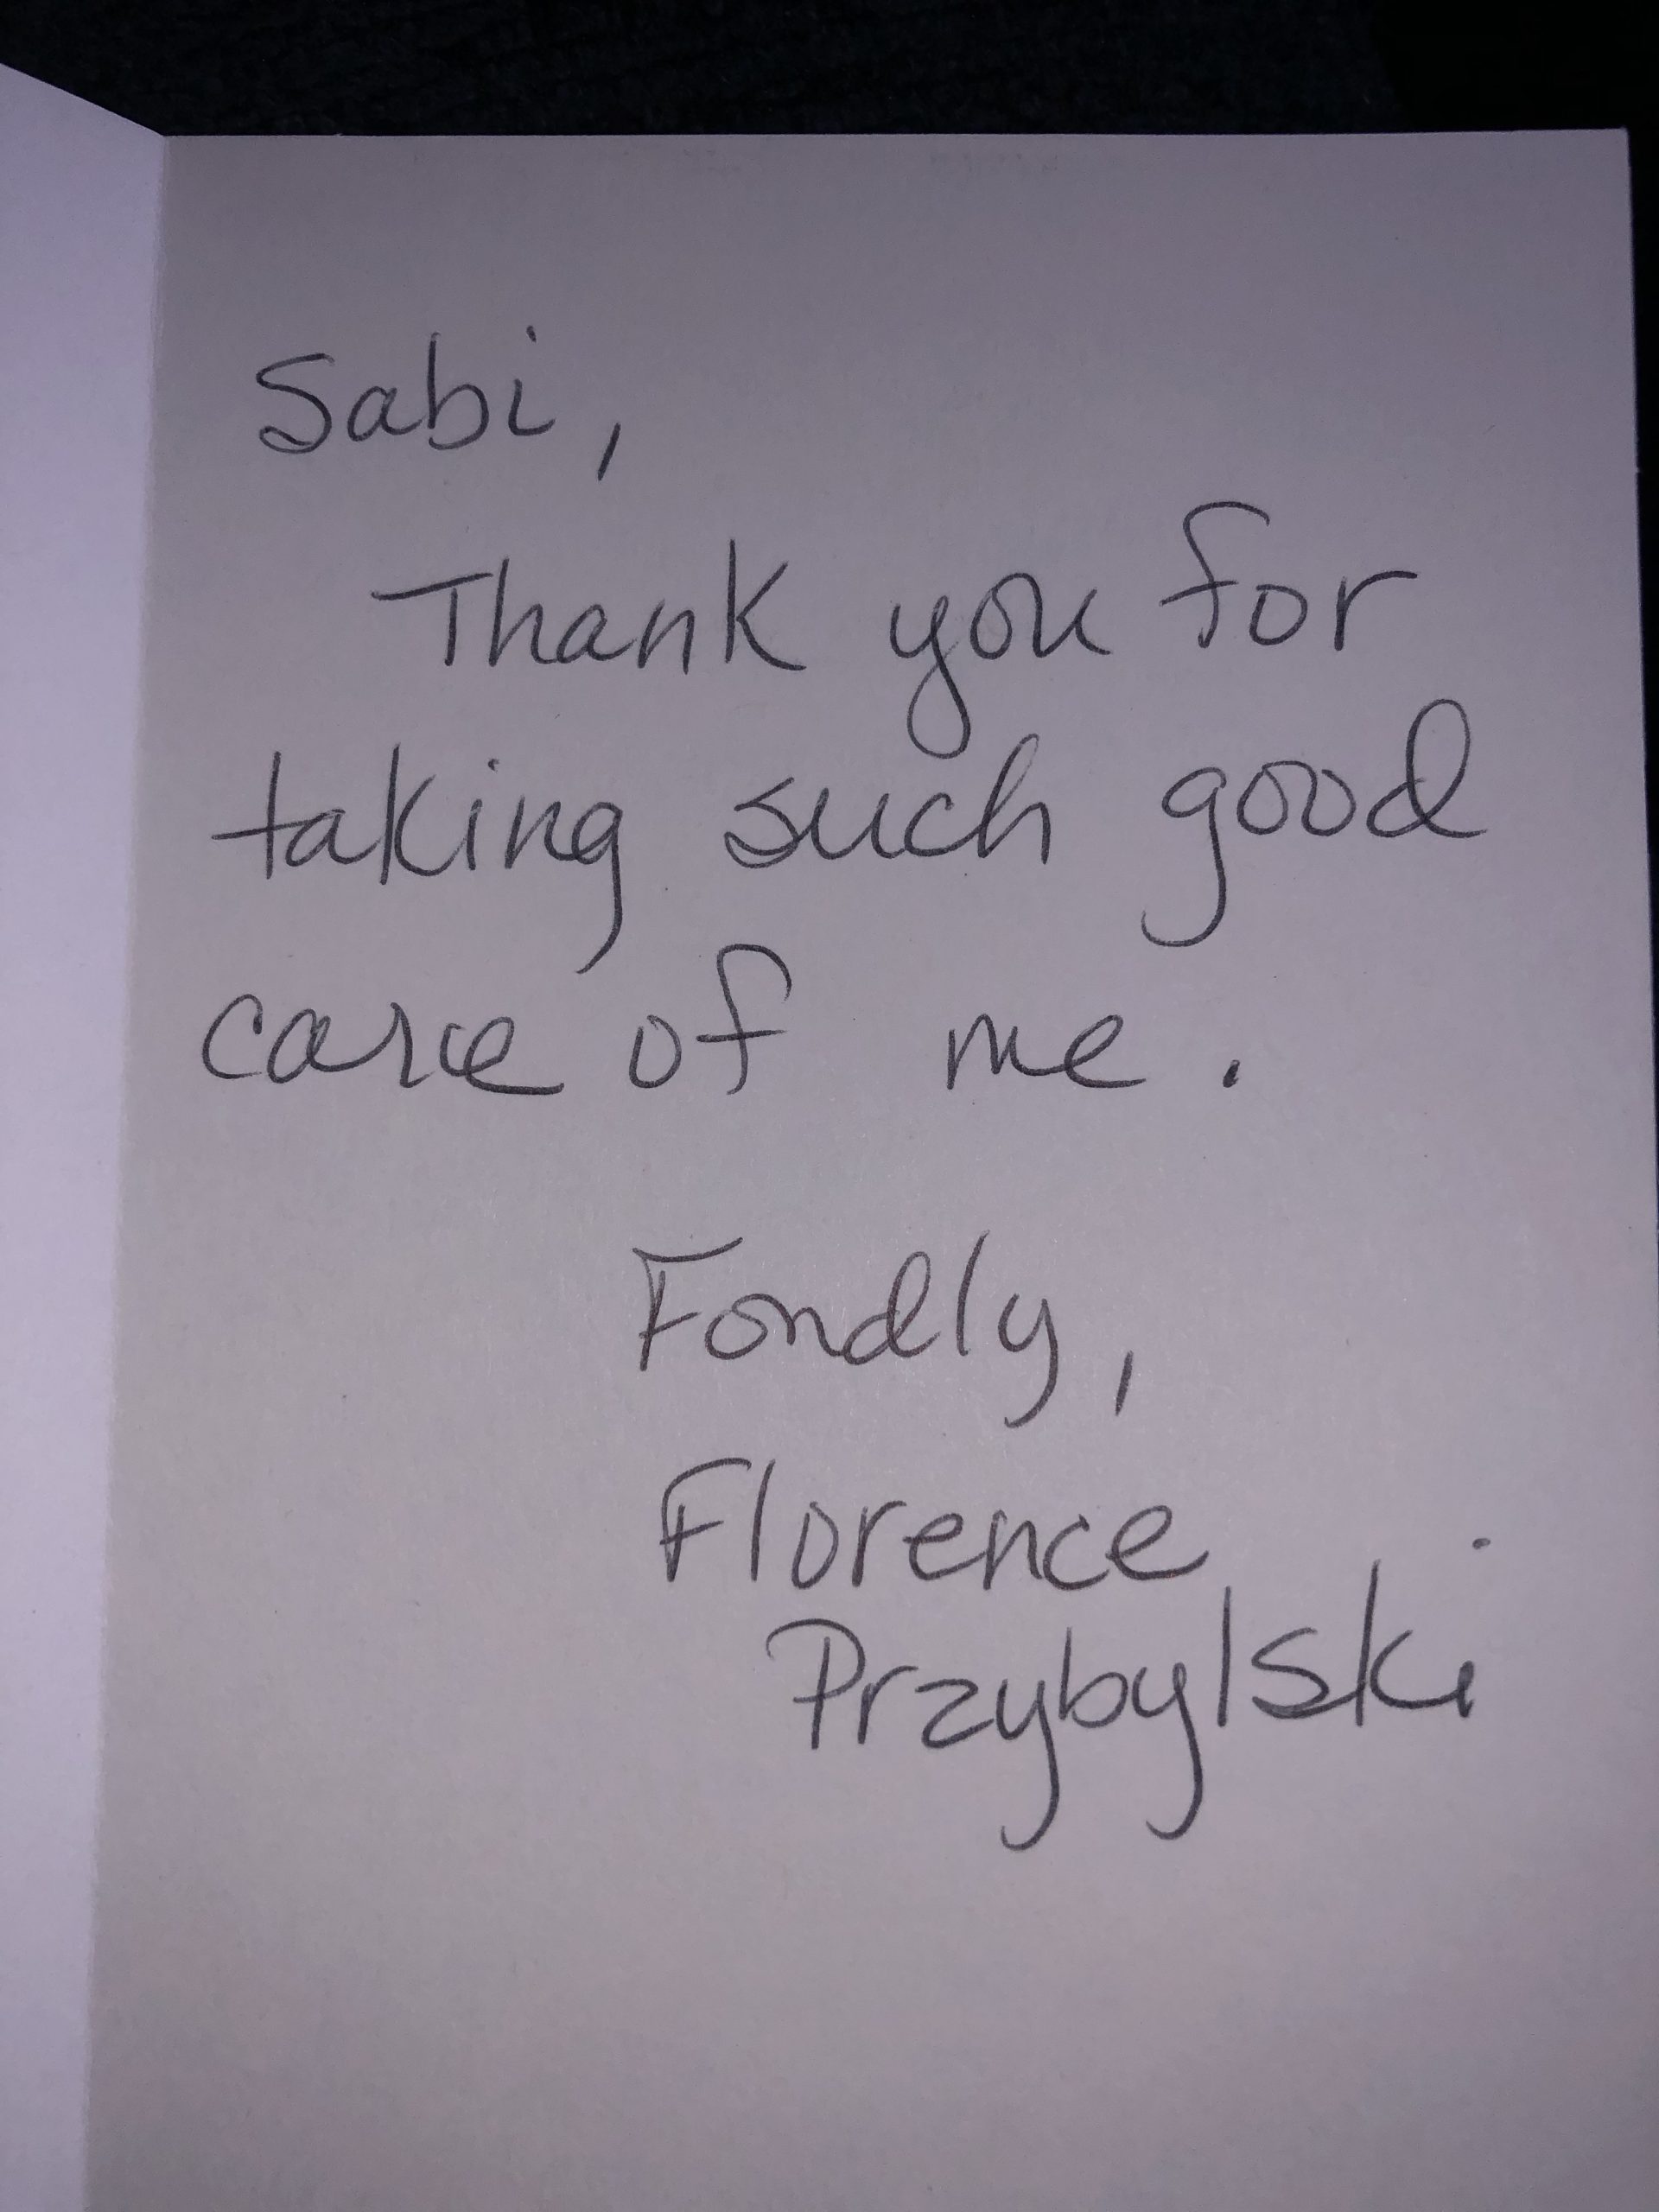 Sabi,
Thank you for
taking such good
care of me.
Fondly,
Florence
Przybylski